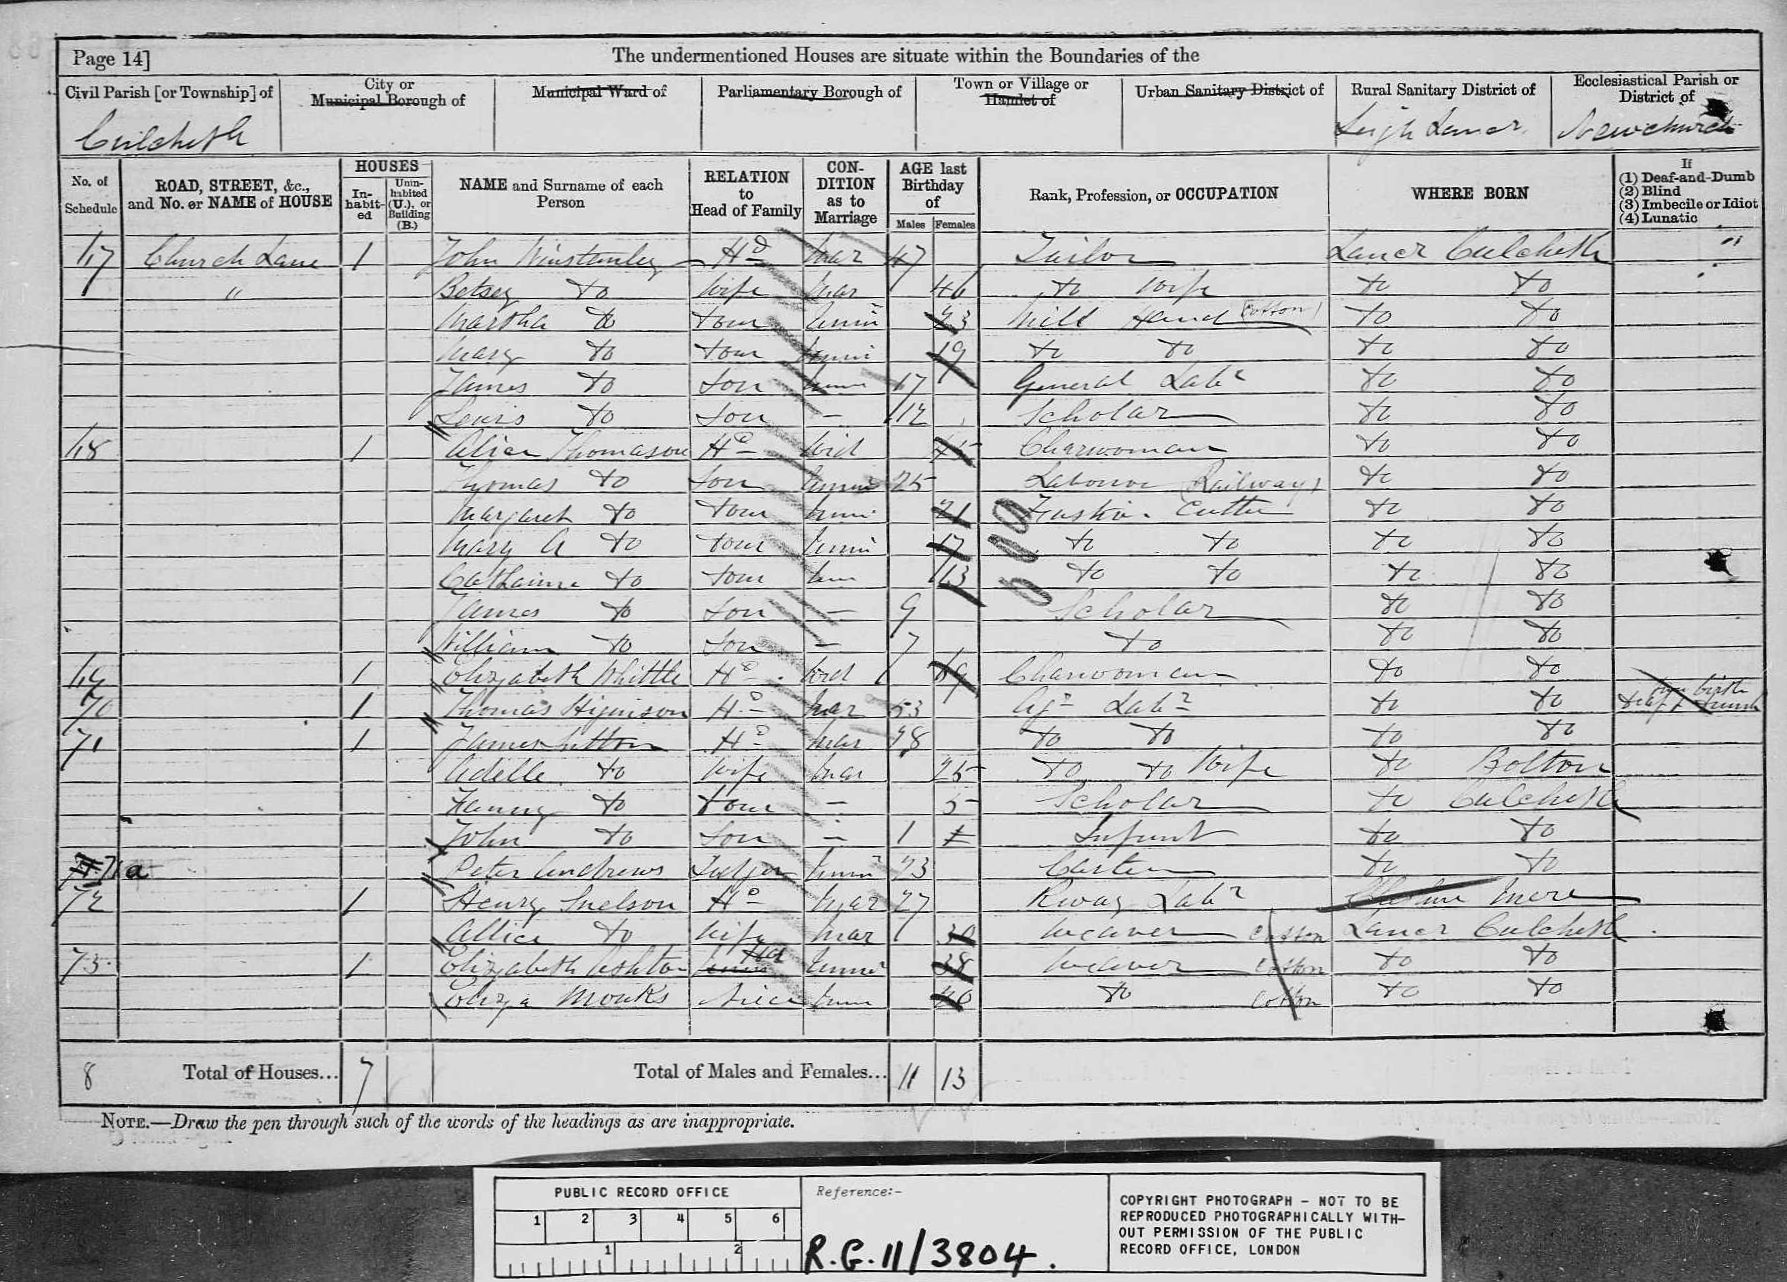 Page 14]
The undermentioned Houses are situate within the Boundaries of the
Civil Parish [or Township] of
City or Municipal Borough of
Municipal Ward of
Parliamentary Borough of
Town or Village or Hamlet of
Urban Sanitary District of
Rural Sanitary District of
Ecclesiastical Parish or District of
Culcheth Leigh Lancr Newchurch
No. of Schedule
ROAD, STREET, &c., and No. or NAME of HOUSE
HOUSES
In-habit-ed
Unin-habited (U.), or Building (B.)
NAME and Surname of each Person
RELATION to Head of Family
CON-DITION as to Marriage
AGE last Birthday of
Males Females
Rank, Profession, or OCCUPATION
WHERE BORN
If
(1) Deaf-and-Dumb
(2) Blind
(3) Imbecile or Idiot
(4) Lunatic
67 Church Lane 1 John Winstanley Hd Mar 47 Tailor Lancr Culcheth
" Betsey Do Wife Mar 46 Do Wife Do Do
Martha Do Daur Unm 23 Mill Hand (Cotton) Do Do
Mary Do Daur Unm 19 Do Do Do Do
James Do Son Unm 17 General Labr Do Do
Lewis Do Son – 12 Scholar Do Do
68 1 Alice Thomason Hd Wid 45 Charwoman Do Do
Thomas Do Son Unm 25 Labourer (Railway) Do Do
Margaret Do Daur Unm 21 Fustian Cutter Do Do
Mary A Do Daur Unm 17 Do Do Do Do
Catharine Do Daur Unm 13 Do Do Do Do
James Do Son – 9 Scholar Do Do
William Do Son – 7 Do Do Do
69 1 Elizabeth Whittle Hd Wid 69 Charwoman Do Do
70 1 Thomas Higinson Hd Mar 53 Agl Labr Do Do
71 1 James Sutton Hd Mar 28 Do Do Do Do
Adelle Do Wife Mar 25 Do Do Wife Do Bolton
Fanny Do Daur – 5 Scholar Do Culcheth
John Do Son – 1 Infant Do Do
71a Peter Andrews Lodger Unm 23 Carter Do Do
72 1 Henry Snelson Hd Mar 27 Rway Labr Cheshire Mere
Allice Do Wife Mar 30 Weaver Cotton Lancr Culcheth
73 1 Elizabeth Ashton Hd Unm 38 Weaver Cotton Do Do
Eliza Monks Niece Unm 20 Do Cotton Do Do
8 Total of Houses... 7 Total of Males and Females... 11 13
NOTE.—Draw the pen through such of the words of the headings as are inappropriate.
PUBLIC RECORD OFFICE
1 2 3 4 5 6
1 2
Reference:-
R.G. 11/3804.
COPYRIGHT PHOTOGRAPH – NOT TO BE
REPRODUCED PHOTOGRAPHICALLY WITH-
OUT PERMISSION OF THE PUBLIC
RECORD OFFICE, LONDON